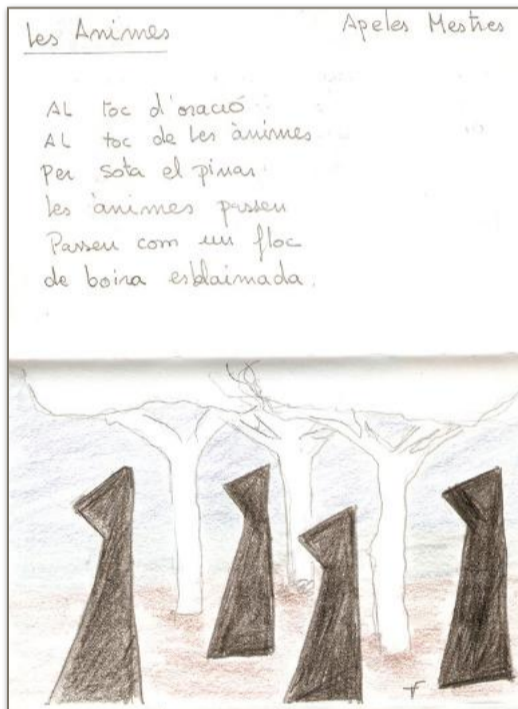 Les Ànimes
Apeles Mestres
AL toc d'oració
AL toc de les ànimes
Per sota el pinar
les ànimes passen
Passen com un floc
de boira esblaimada.